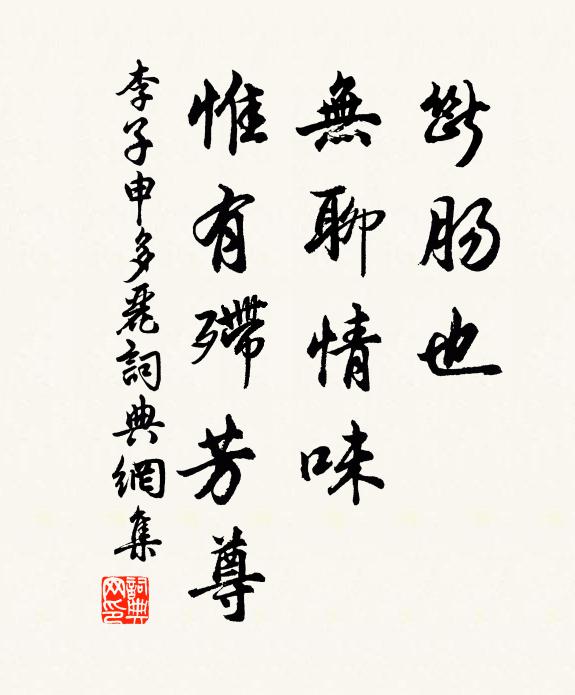 斷肠也
無聊情味
惟有殢芳尊
李子申多麗詞典網集
詞典网印